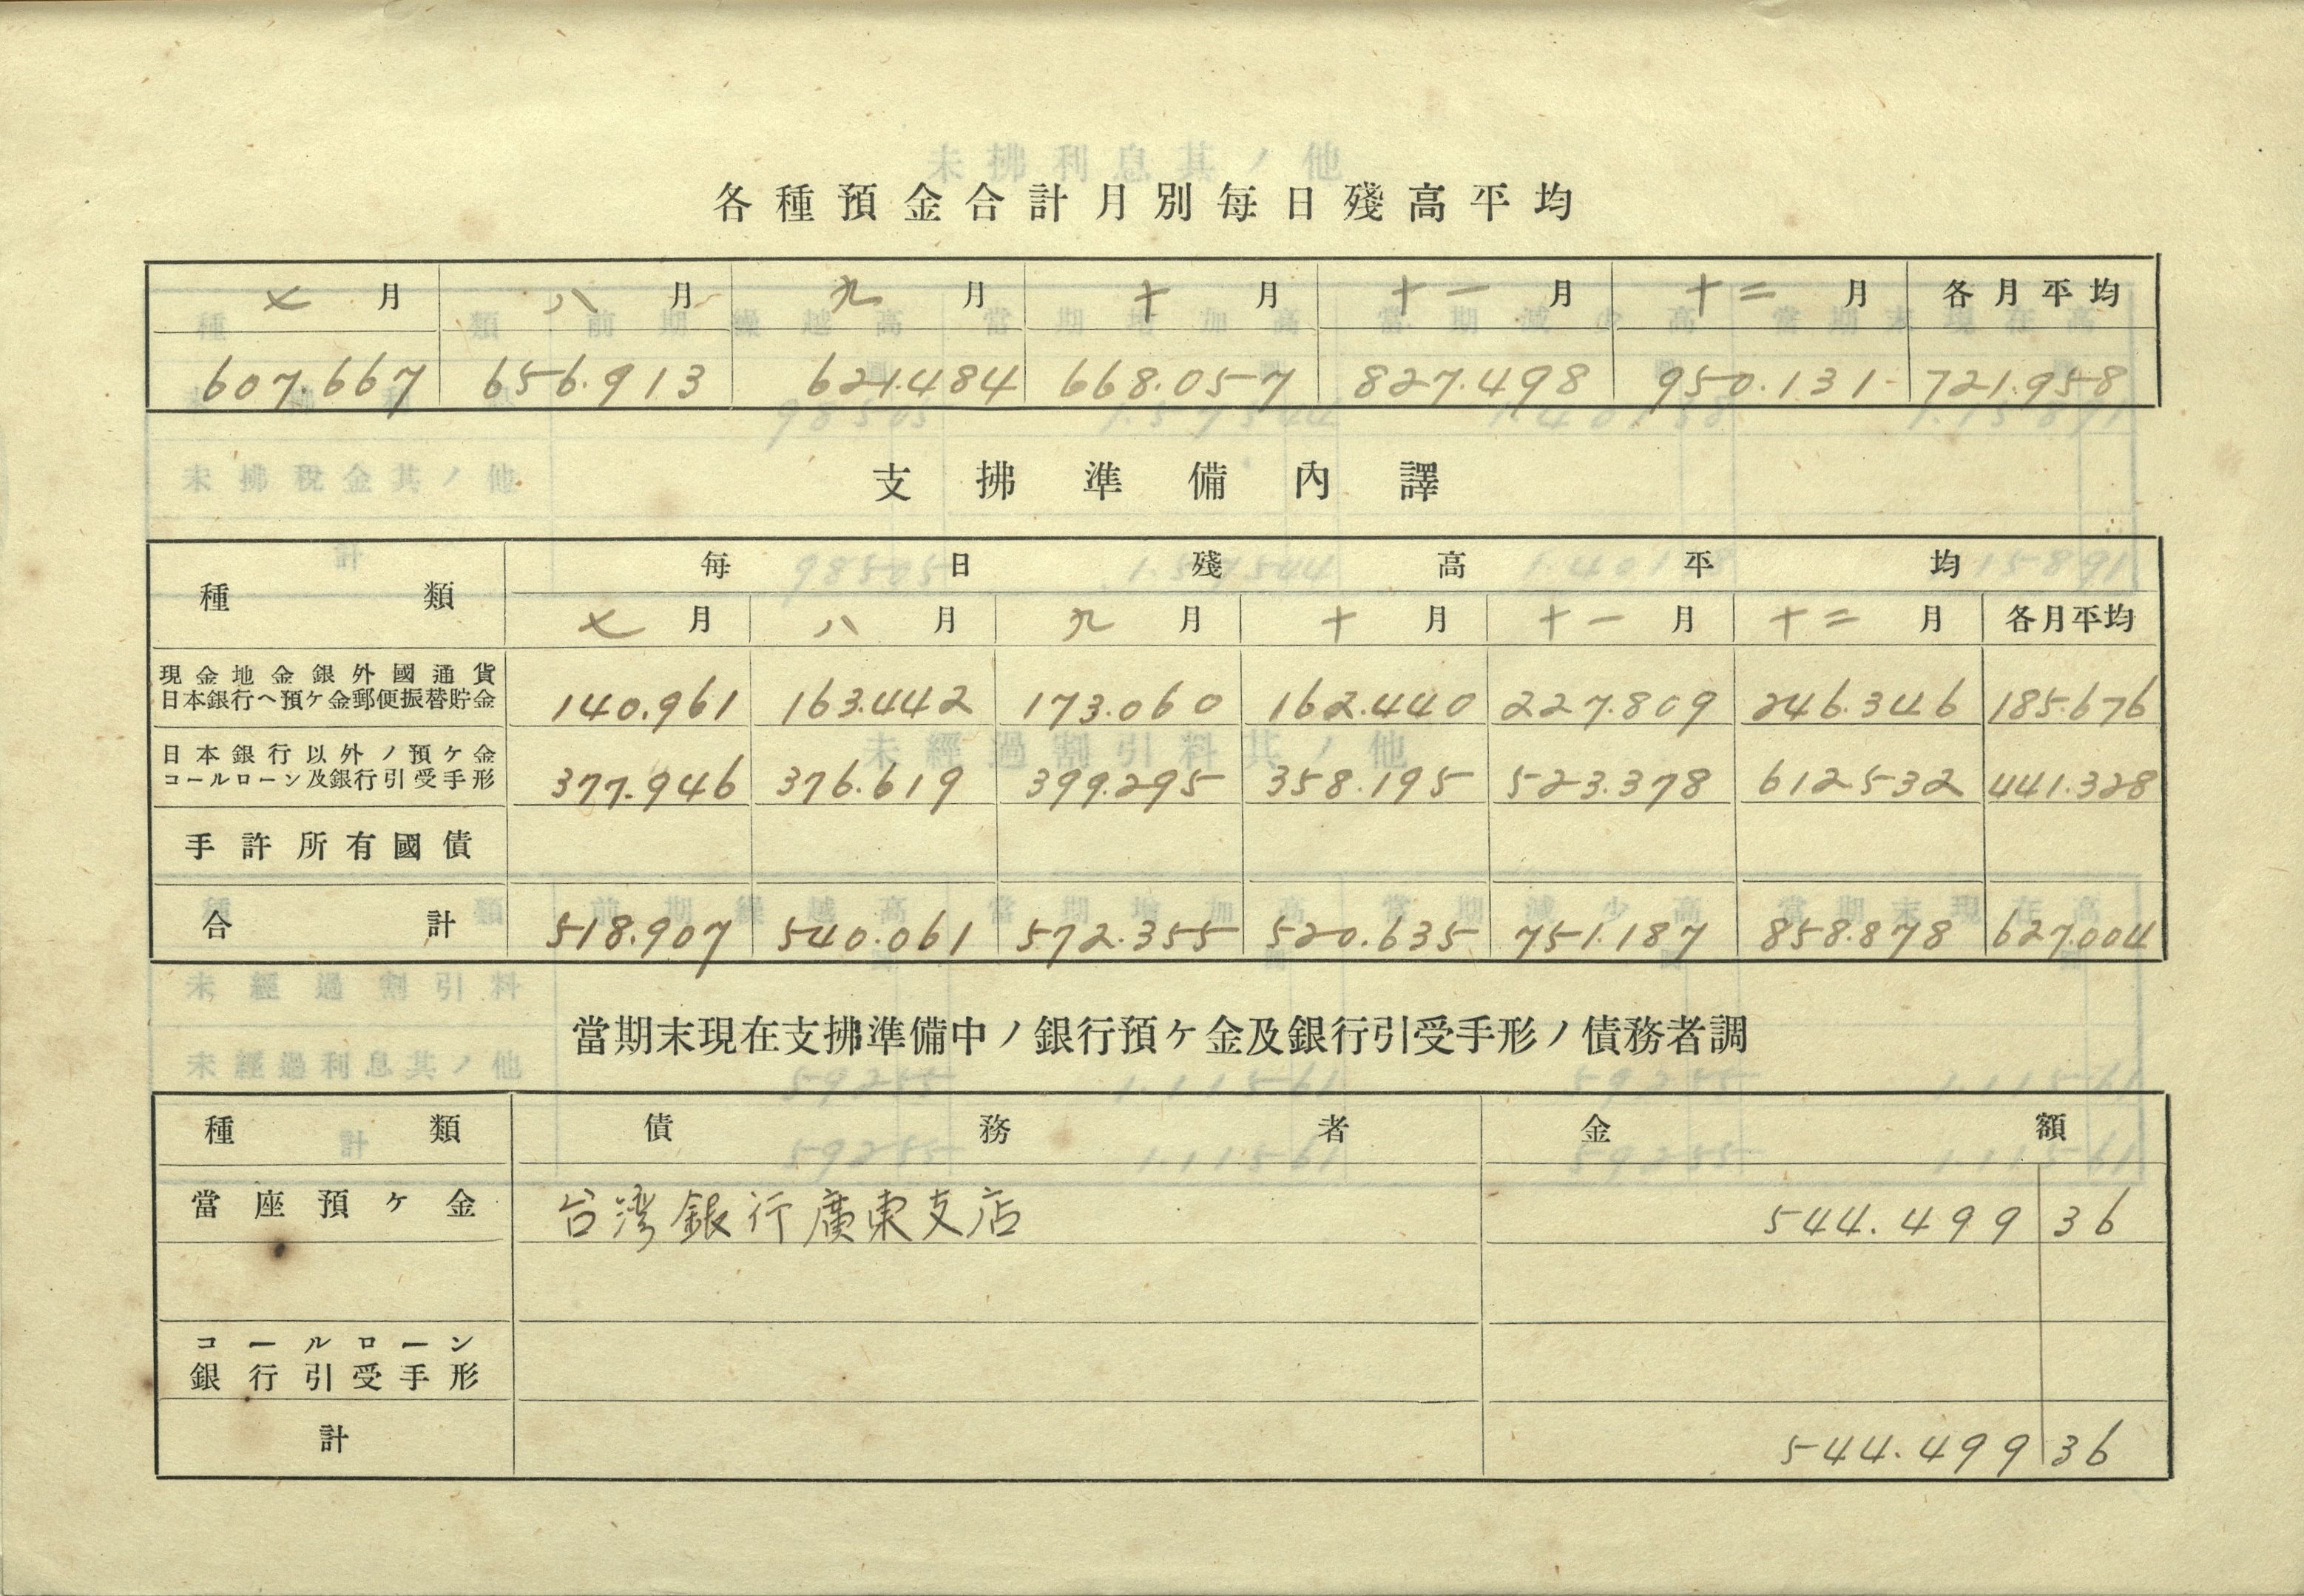 各種預金合計月別每日殘高平均
七月 八月 九月 十月 十一月 十二月 各月平均
607.667 656.913 621.484 668.057 827.498 950.131 721.958
支拂準備內譯
種類 每日殘高平均
七月 八月 九月 十月 十一月 十二月 各月平均
現金地金銀外國通貨
日本銀行へ預ケ金郵便振替貯金 140.961 163.442 173.060 162.440 227.809 246.346 185.676
日本銀行以外ノ預ケ金
コールローン及銀行引受手形 377.946 376.619 399.295 358.195 523.378 612.532 441.328
手許所有國債
合計 518.907 540.061 572.355 520.635 751.187 858.878 627.004
當期末現在支拂準備中ノ銀行預ケ金及銀行引受手形ノ債務者調
種類 債務者 金額
當座預ケ金 台湾銀行廣東支店 544.499 36
コールローン
銀行引受手形
計 544.499 36